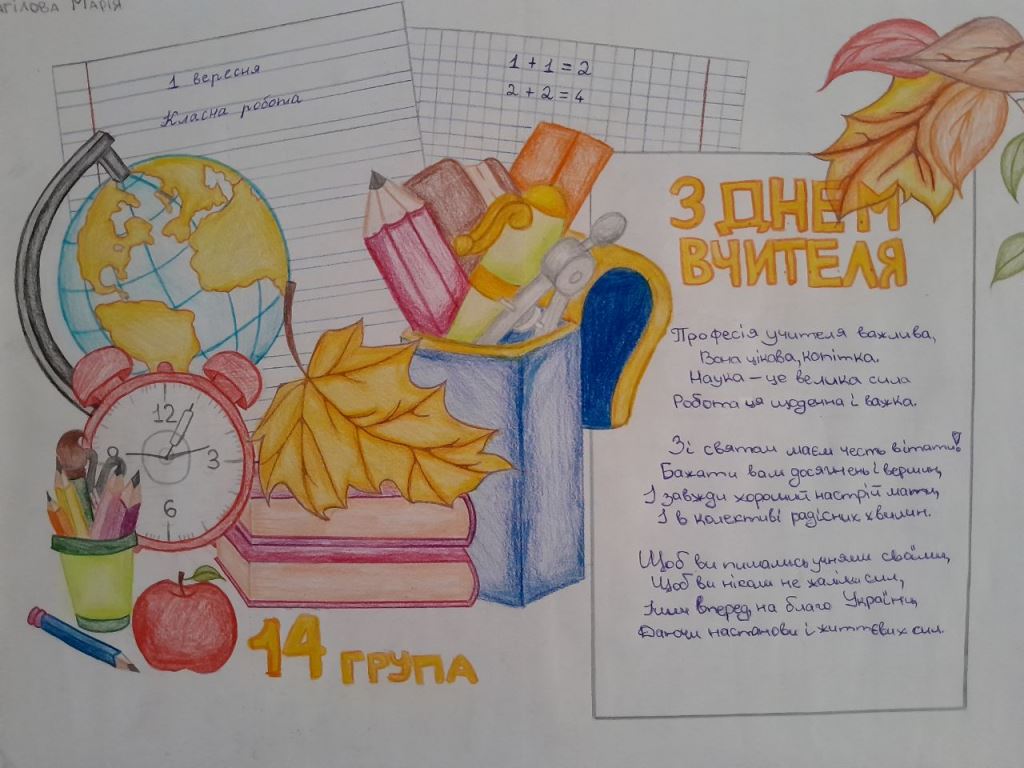 Марія
1 вересня
Класна робота
1 + 1 = 2
2 + 2 = 4
З ДНЕМ
ВЧИТЕЛЯ
Професія учителя важлива,
Вона цікова, копітка.
Наука – це велика сила
Робота ця щоденна і важка.
Зі святом маєм честь вітати!
Бажати вам досягнень і вершин,
І завжди хороший настрій мати,
І в колективі радісних хвилин.
Щоб ви пишались учнями своїми,
Щоб ви ніколи не жаліли сил,
Ішли вперед на благо України,
Даючи настанови і життєвих сил.
12
3
6
9
14 ГРУПА